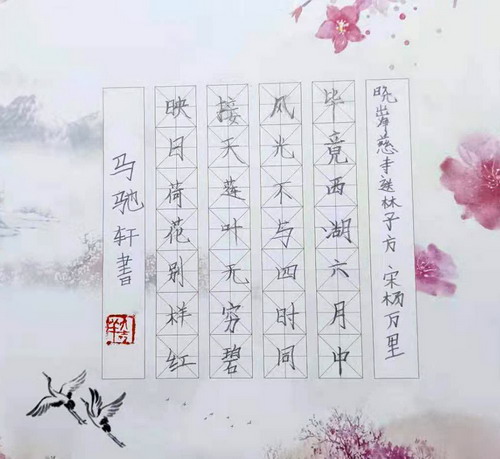 晓岸慈寺送林子方 宋杨万里
毕竟西湖六月中
风光不与四时同
接天莲叶无穷碧
映日荷花别样红
马驰轩書